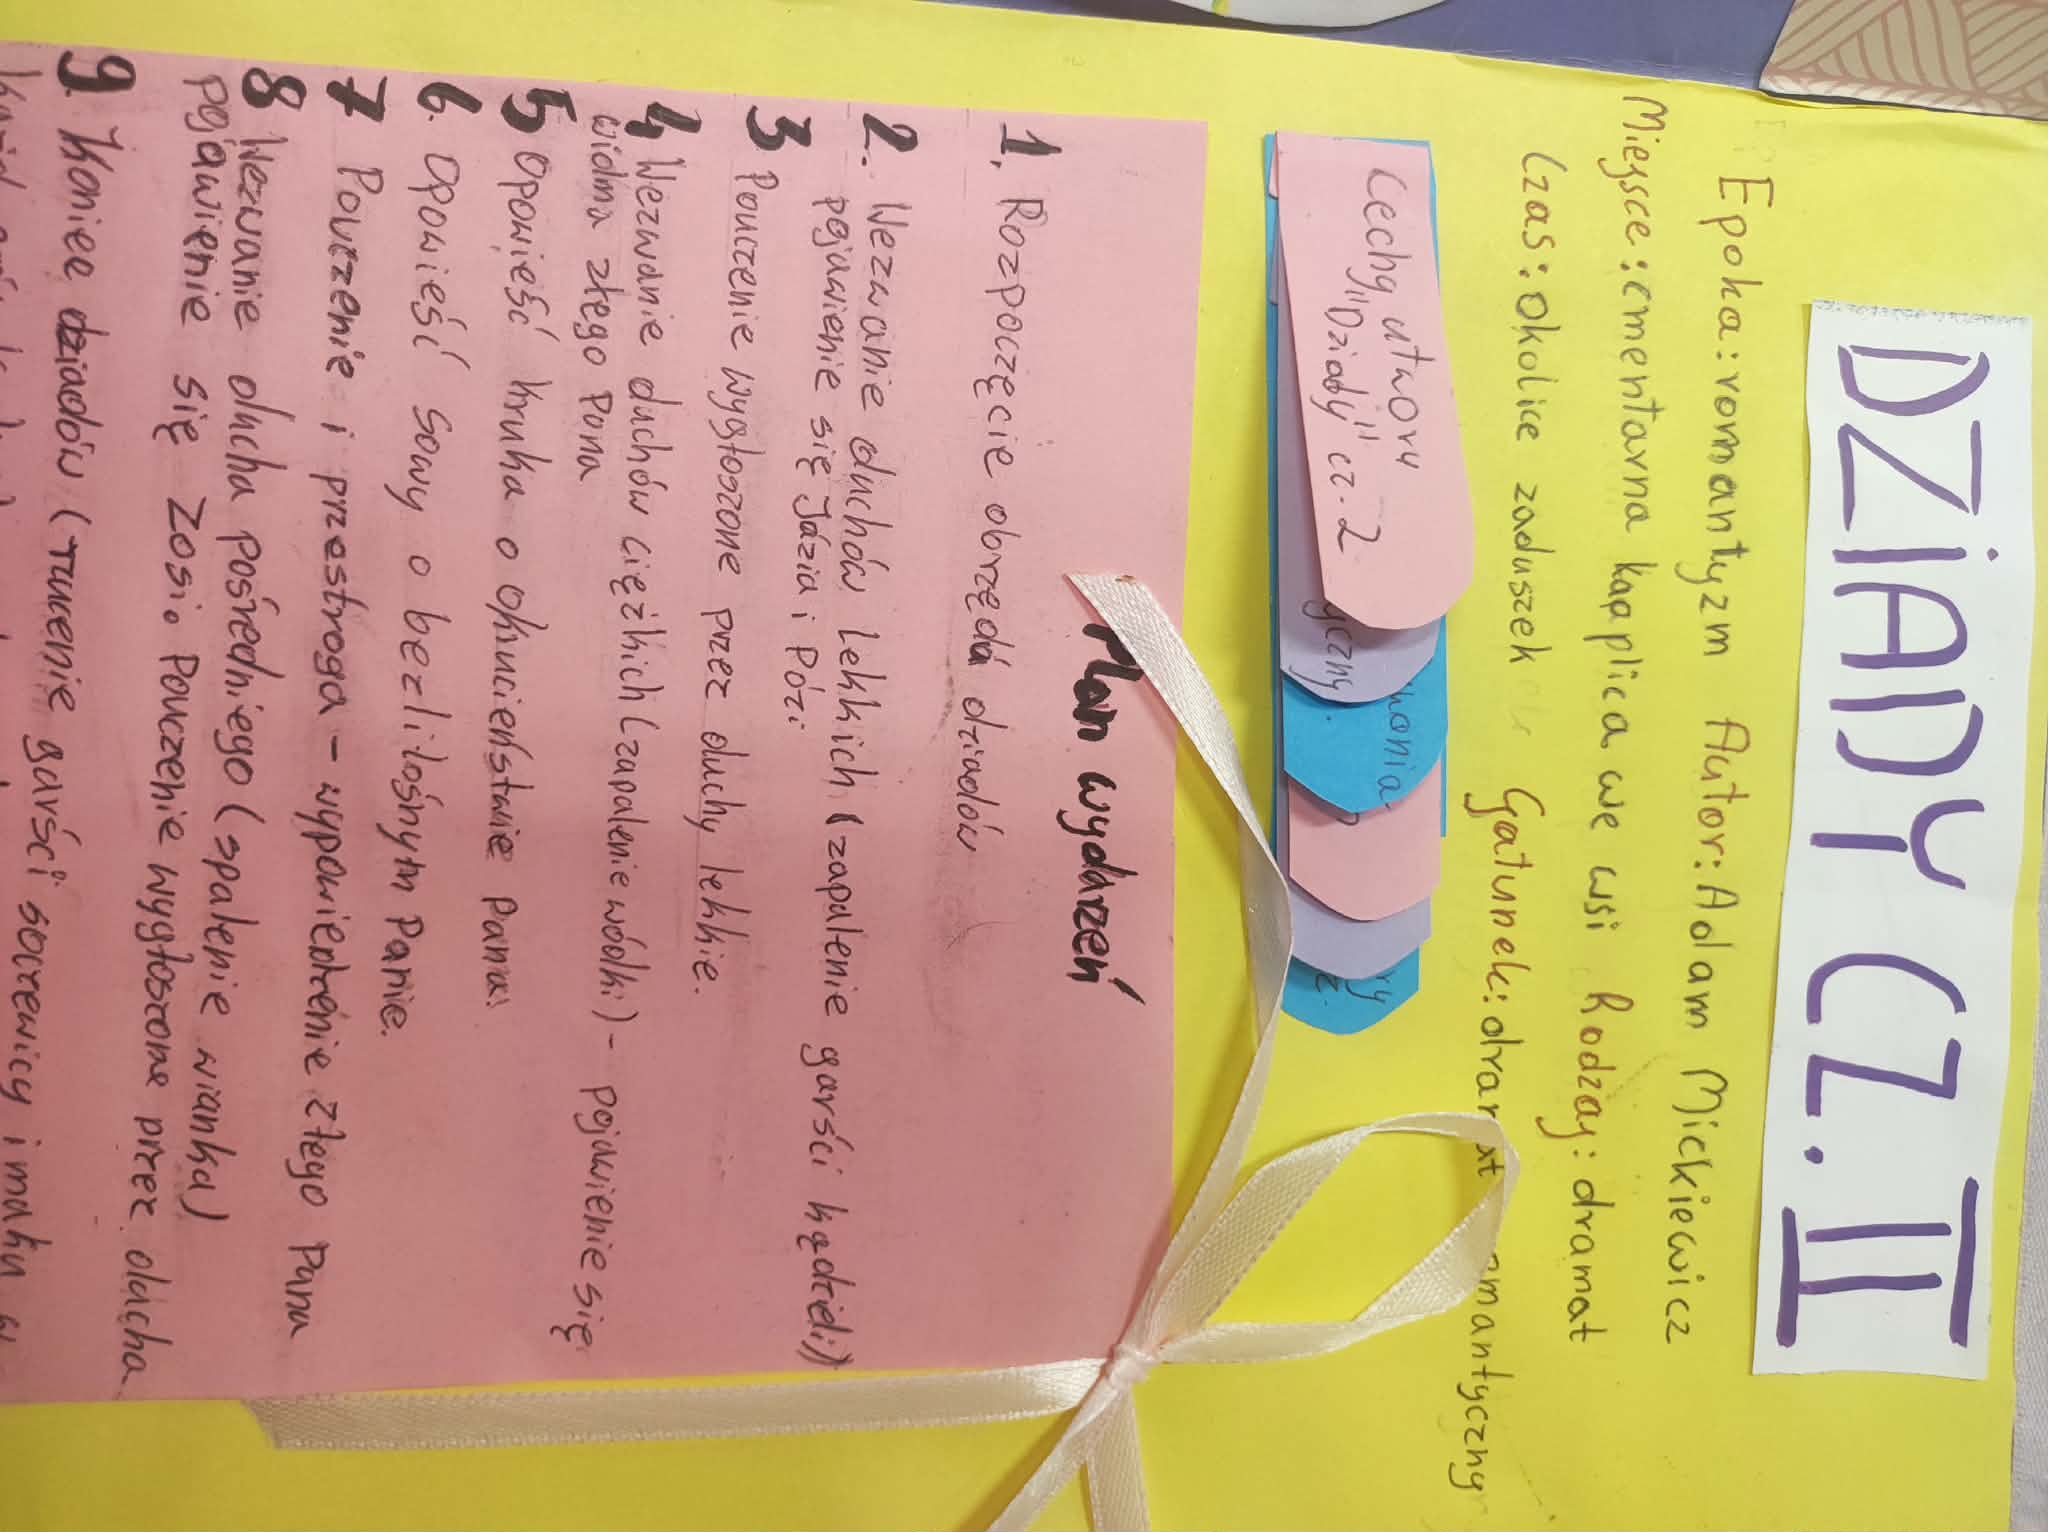 DZIADY CZ. II
Epoka: romantyzm Autor: Adam Mickiewicz
Miejsce: cmentarna kaplica we wsi Rodzaj: dramat
Czas: okolice zaduszek Gatunek: dramat romantyczny
Cechy utworu
"Dziady" cz. 2
yczny.
Plan wydarzeń
1. Rozpoczęcie obrzędu dziadów
2. Wezwanie duchów lekkich (zapalenie garści kądzieli)
pojawienie się Józia i Rózi
3 Pouczenie wygłoszone przez duchy lekkie.
4 Wezwanie duchów ciężkich (zapalenie wódki) - pojawienie się
widma złego Pana
5 Opowieść kruka o okrucieństwie pana
6. Opowieść sowy o bezlitośnym Panie.
7 Pouczenie i przestroga - wypowiedzenie złego pana
8 Wezwanie ducha pośredniego (spalenie wianka)
pojawienie się Zosi. Pouczenie wygłoszone przez ducha
9. Koniec dziadów (rzucenie garści soczewicy i maku w